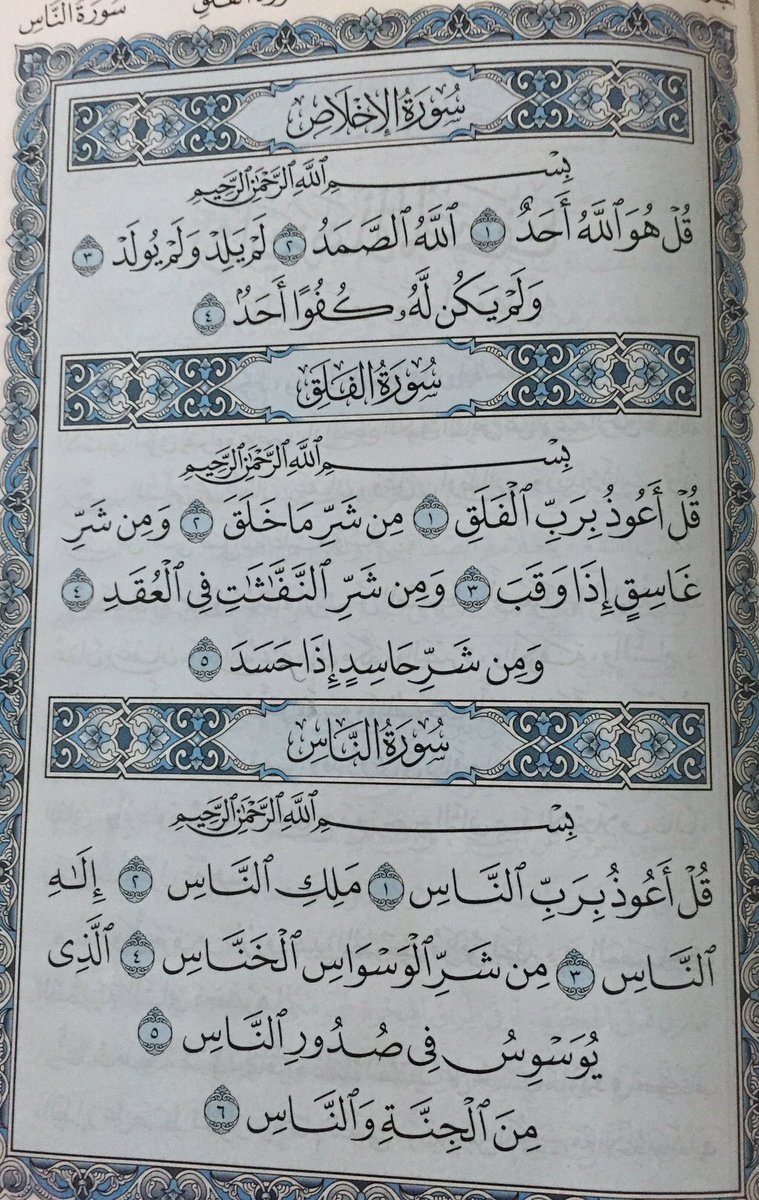 سُورَةُ النَّاسِ
سُورَةُ الإِخْلَاصِ
بِسْمِ ٱللَّهِ ٱلرَّحْمَٰنِ ٱلرَّحِيمِ
قُلْ هُوَ ٱللَّهُ أَحَدٌ ١ ٱللَّهُ ٱلصَّمَدُ ٢ لَمْ يَلِدْ وَلَمْ يُولَدْ ٣
وَلَمْ يَكُن لَّهُۥ كُفُوًا أَحَدٌۢ ٤
سُورَةُ الفَلَقِ
بِسْمِ ٱللَّهِ ٱلرَّحْمَٰنِ ٱلرَّحِيمِ
قُلْ أَعُوذُ بِرَبِّ ٱلْفَلَقِ ١ مِن شَرِّ مَا خَلَقَ ٢ وَمِن شَرِّ
غَاسِقٍ إِذَا وَقَبَ ٣ وَمِن شَرِّ ٱلنَّفَّٰثَٰتِ فِى ٱلْعُقَدِ ٤
وَمِن شَرِّ حَاسِدٍ إِذَا حَسَدَ ٥
سُورَةُ النَّاسِ
بِسْمِ ٱللَّهِ ٱلرَّحْمَٰنِ ٱلرَّحِيمِ
قُلْ أَعُوذُ بِرَبِّ ٱلنَّاسِ ١ مَلِكِ ٱلنَّاسِ ٢ إِلَٰهِ
ٱلنَّاسِ ٣ مِن شَرِّ ٱلْوَسْوَاسِ ٱلْخَنَّاسِ ٤ ٱلَّذِى
يُوَسْوِسُ فِى صُدُورِ ٱلنَّاسِ ٥
مِنَ ٱلْجِنَّةِ وَٱلنَّاسِ ٦